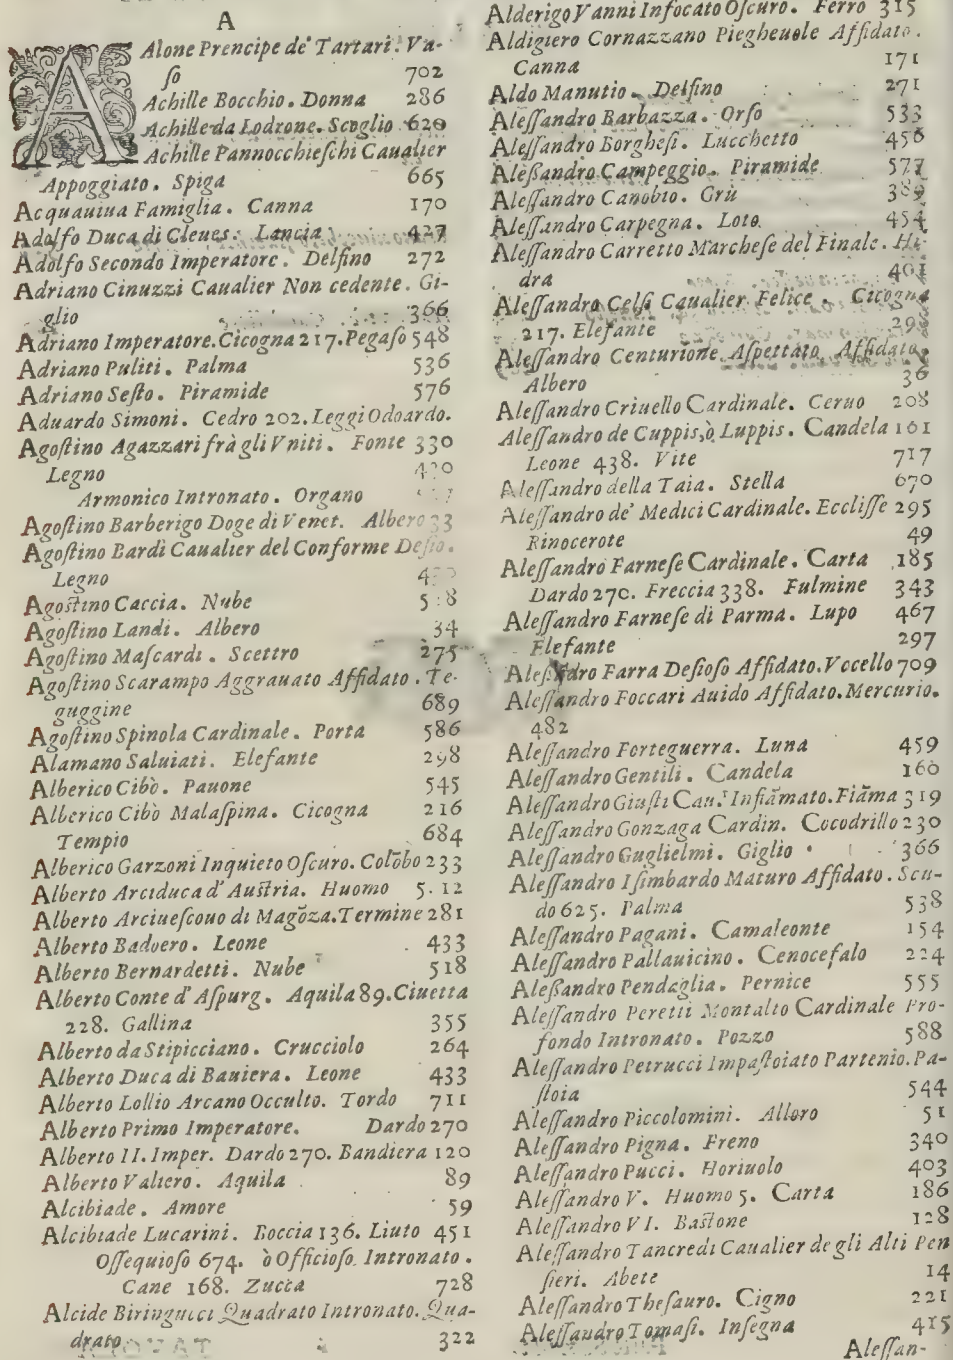 A
Alone Prencipe de' Tartari. Va-
ſo 702
Achille Bocchio. Donna 286
Achille da Lodrone. Scoglio 620
Achille Pannocchieſchi Caualier
Appoggiato. Spiga 665
Acquauiua Famiglia. Canna 170
Adolfo Duca di Cleues. Lancia 427
Adolfo Secondo Imperatore. Delfino 272
Adriano Cinuzzi Caualier Non cedente. Gi-
glio 366
Adriano Imperatore. Cicogna 217. Pegaſo 548
Adriano Puliti. Palma 536
Adriano Seſto. Piramide 576
Aduardo Simoni. Cedro 202. Leggi Odoardo.
Agoſtino Agazzari frà gli Vniti. Fonte 330
Legno
Armonico Intronato. Organo
Agoſtino Barberigo Doge di Venet. Albero 33
Agoſtino Bardi Caualier del Conforme Deſio.
Legno
Agoſtino Caccia. Nube
Agoſtino Landi. Albero 34
Agoſtino Maſcardi. Scettro 275
Agoſtino Scarampo Aggrauato Affidato. Te-
guggine 689
Agoſtino Spinola Cardinale. Porta 586
Alamano Saluiati. Elefante 298
Alberico Cibò. Pauone 545
Alberico Cibò Malaſpina. Cicogna 216
Tempio 684
Alberico Garzoni Inquieto Oſcuro. Colōbo 233
Alberto Arciduca d' Auſtria. Huomo 5. 12
Alberto Arciueſcouo di Magōza. Termine 281
Alberto Badoero. Leone 433
Alberto Bernardetti. Nube 518
Alberto Conte d' Aſpurg. Aquila 89. Ciuetta
228. Gallina 355
Alberto da Stipicciano. Crucciolo 264
Alberto Duca di Bauiera. Leone 433
Alberto Lollio Arcano Occulto. Tordo 711
Alberto Primo Imperatore. Dardo 270
Alberto II. Imper. Dardo 270. Bandiera 120
Alberto Valiero. Aquila 89
Alcibiade. Amore 59
Alcibiade Lucarini. Boccia 136. Liuto 451
Oſſequioſo 674. ò Officioſo. Intronato.
Cane 168. Zucca 728
Alcide Biringucci Quadrato Intronato. Qua-
drato 322
Alderigo Vanni Infocato Oſcuro. Ferro 315
Aldigiero Cornazzano Piegheuole Affidato.
Canna 171
Aldo Manutio. Delfino 271
Aleſſandro Barbazza. Orſo 533
Aleſſandro Borgheſi. Lucchetto 456
Aleßandro Campeggio. Piramide 577
Aleſſandro Canobio. Grù 389
Aleſſandro Carpegna. Loto 454
Aleſſandro Carretto Marcheſe del Finale. Hi-
dra 401
Aleſſandro Celſi Caualier Felice. Cicogna
217. Elefante
Aleſſandro Centurione Aſpettato Affidato.
Albero 36
Aleſſandro Criuello Cardinale. Ceruo 208
Aleſſandro de Cuppis, ò Luppis. Candela 161
Leone 438. Vite 717
Aleſſandro della Taia. Stella 670
Aleſſandro de' Medici Cardinale. Eccliſſe 295
Rinocerote 49
Aleſſandro Farneſe Cardinale. Carta 185
Dardo 270. Freccia 338. Fulmine 343
Aleſſandro Farneſe di Parma. Lupo 467
Elefante 297
Aleſſandro Farra Deſioſo Affidato. Vccello 709
Aleſſandro Foccari Auido Affidato. Mercurio.
482
Aleſſandro Forteguerra. Luna 459
Aleſſandro Gentili. Candela 160
Aleſſandro Giuſti Cau.r Infiāmato. Fiāma 319
Aleſſandro Gonzaga Cardin. Cocodrillo 230
Aleſſandro Guglielmi. Giglio 366
Aleſſandro Iſimbardo Maturo Affidato. Scu-
do 625. Palma 538
Aleſſandro Pagani. Camaleonte 154
Aleſſandro Pallauicino. Cenocefalo 224
Aleßandro Pendaglia. Pernice 555
Aleſſandro Peretti Montalto Cardinale Pro-
fondo Intronato. Pozzo 588
Aleſſandro Petrucci Impaſtoiato Partenio. Pa-
ſtoia 544
Aleſſandro Piccolomini. Alloro 51
Aleſſandro Pigna. Freno 340
Aleſſandro Pucci. Horiuolo 403
Aleſſandro V. Huomo 5. Carta 186
Aleſſandro VI. Baſtone 128
Aleſſandro Tancredi Caualier de gli Alti Pen
ſieri. Abete 14
Aleſſandro Theſauro. Cigno 221
Aleſſandro Tomaſi. Inſegna 415
Aleſſan-